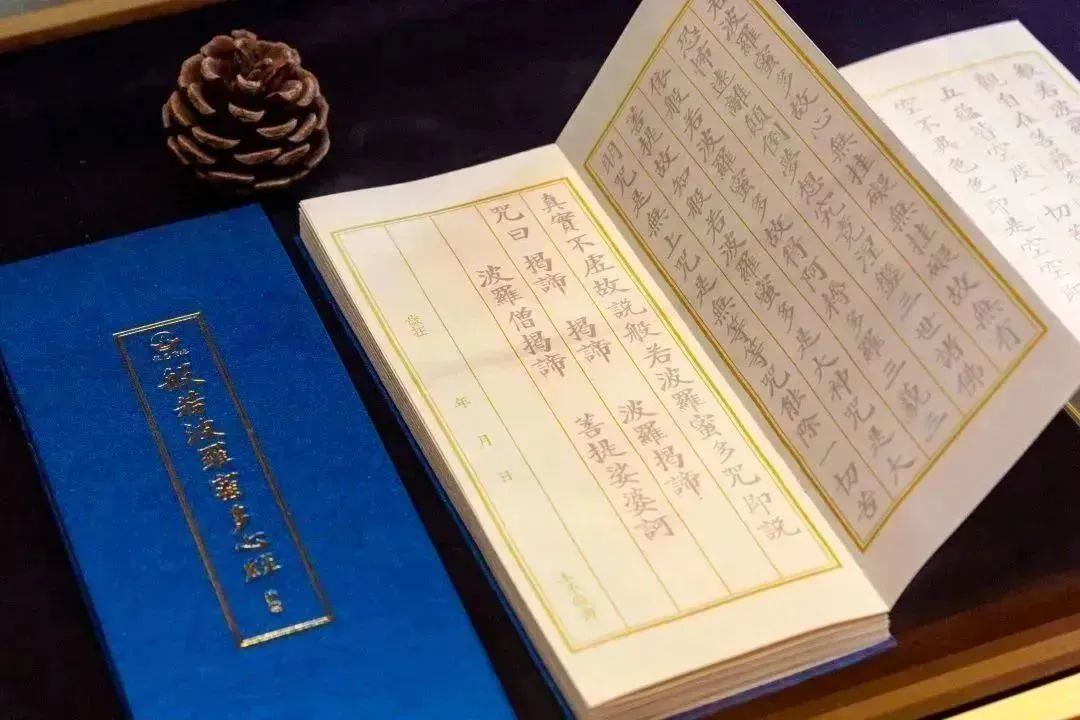 般若波
觀自在菩薩
五蘊皆空度一切
空不異色色即是空空即
若波羅蜜多故心無挂礙無挂礙故無有
恐怖遠離顛倒夢想究竟涅槃三世諸佛
依般若波羅蜜多故得阿耨多羅三藐三
菩提故知般若波羅蜜多是大神咒是大
明咒是無上咒是無等等咒能除一切苦
真實不虛故說般若波羅蜜多咒即說
咒曰 揭諦 揭諦 波羅揭諦
波羅僧揭諦 菩提娑婆訶
歲在 年 月 日
般若波羅蜜多心經